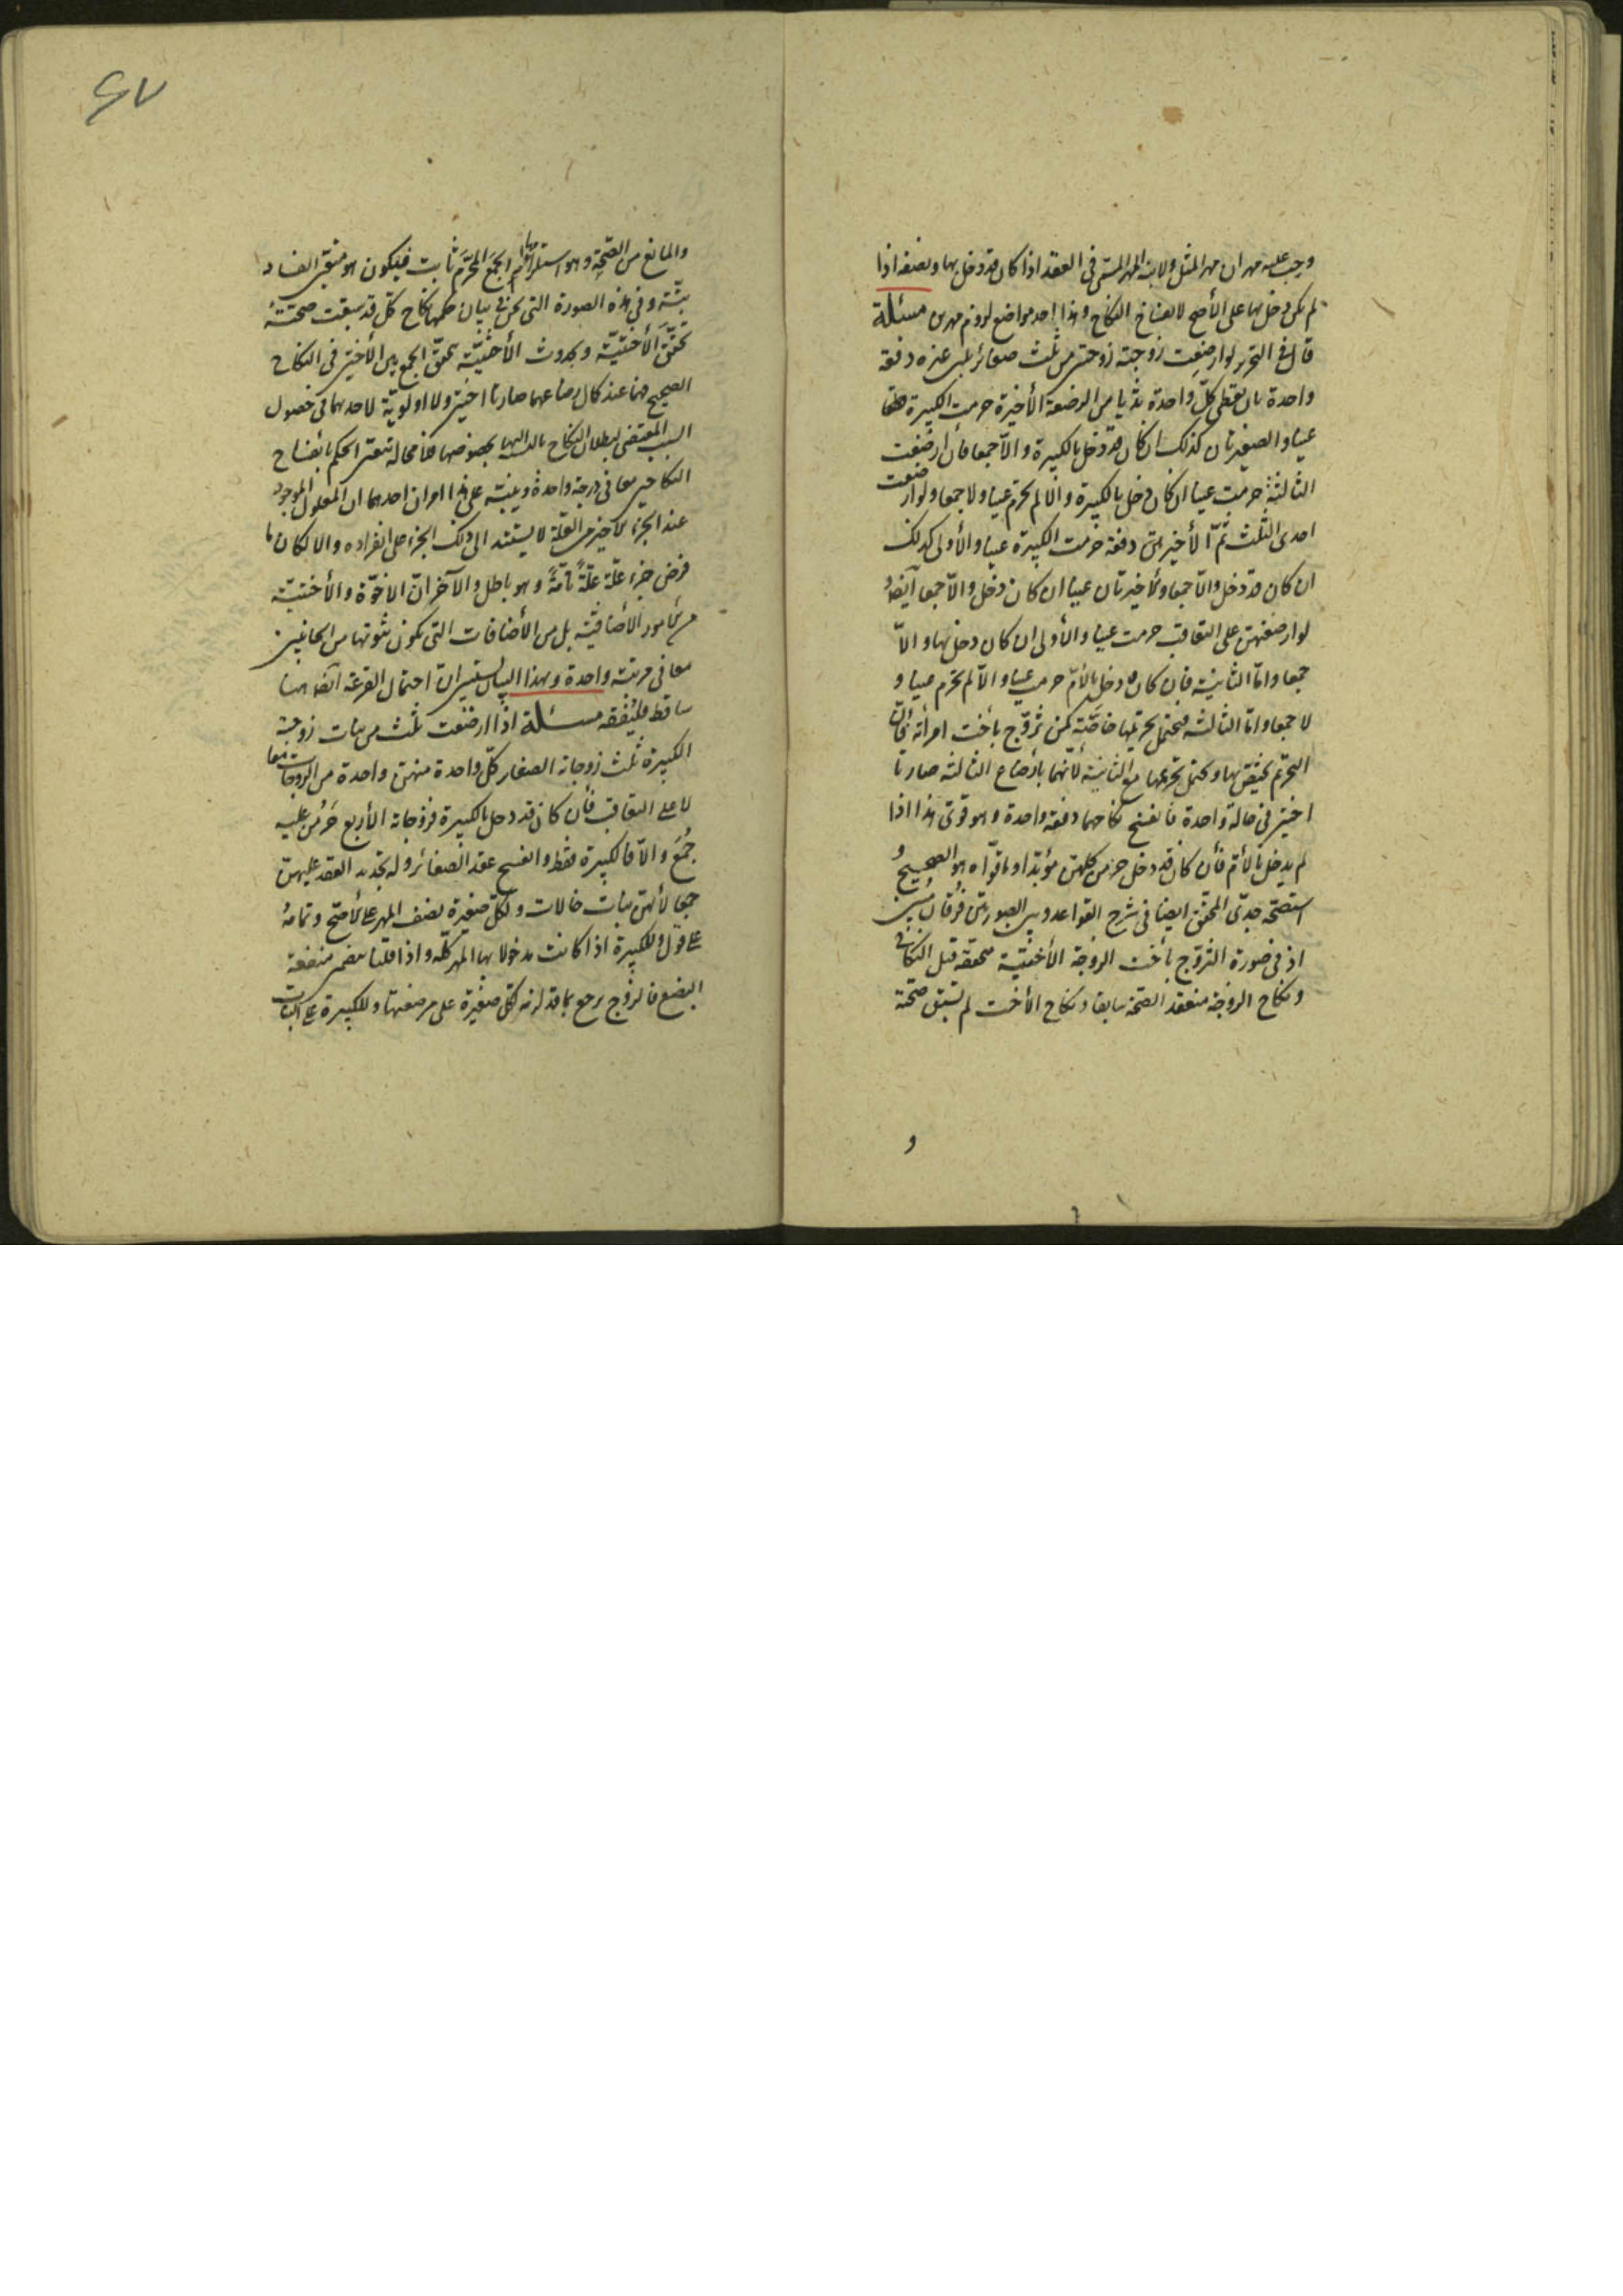 وجب عليه مهران مهر المثل ولابنة المهر المسمى فى العقد اذا كان قد دخل بها ونصفه اذا
لم يكن دخل بها على الأصح لانفساخ النكاح وهذا احد مواضع لزوم مهرين مسئلة
قال فى التحرير لو ارضعت زوجته زوجتين من ثلث صغائر بلبن غيره دفعة
واحدة بان يعطى كل واحدة ثديا من الرضعة الأخيرة حرمت الكبيرة
عينا والصغيرتان كذلك ان كان قد دخل بالكبيرة والّا جمعا فأن ارضعت
الثالثة حرمت عينا ان كان دخل بالكبيرة والّا لم تحرم عينا ولا جمعا ولو ارضعت
احدى الثلث ثمّ الأخيرتين دفعة حرمت الكبيرة عينا والأولى كذلك
ان كان قد دخل والّا جمعا والأخيرتان عينا ان كان دخل والّا جمعا ايضا
لو ارضعتهن على التعاقب حرمت عينا والأولى ان كان دخل بها والّا
جمعا وامّا الثانية فان كان دخل بالأمّ حرمت عينا والّا لم تحرم عينا و
لا جمعا وامّا الثالثة فيحتمل تحريمها خاصّة كمن تزوّج بأخت امرأته فأنّ
التحريم يختص بها ويحتمل تحريمها مع الثانية لأنّهما بأرضاع الثالثة صارتا
اختين فى حالة واحدة فانفسخ نكاحهما دفعة واحدة وهو قوى هذا اذا
لم يدخل بالأم فأن كان قد دخل حرمن كلهن مؤبدا وما قوّاه هو الصحيح و
استصحه جدّى المحقق ايضا فى شرح القواعد وبين الصورتين فرقان مبين
اذ فى صورة التزوج بأخت الزوجة الأختيّة متحققة قبل النكاح
ونكاح الزوجة منعقد الصحة سابقا ونكاح الأخت لم تسبق صحته
و
والمانع من الصّحّة وهو استلزامها الجمع المحرّم ثابت فيكون هو متعيّن الفساد
بتّة وفى هذه الصورة التى نحن فى بيان حكمها نكاح كلّ قد سبقت صحّته
تحقّق الأختيّة وبحدوث الأختيّة تحقّق الجمع بين الأختين فى النكاح
الصحيح فما عند كمال رضاعهما صارتا اختين ولا اولويّة لاحدهما فى حصول
السبب المقتضى لبطلان النكاح بالنسبة اليها بخصوصها فلا محالة تعيّن الحكم بانفساخ
النكاحين معا فى درجة واحدة ويبتنى على هذا امران احدهما ان المعلول الموجود
عند الجزء الأخير من العلّة لا يستند الى ذلك الجزء على انفراده والا لكان ما
فرض جزء علّة علّة تامّة وهو باطل والآخر انّ الاخوّة والأختيّة
من الأمور الأضافيّة بل من الأضافات التى يكون ثبوتها من الجانبين
معا فى مرتبة واحدة وبهذا البيان يستبين ان احتمال القرعة ايضا هنا
ساقط فليتفقه مسئلة اذا ارضعت ثلث من بنات زوجته
الكبيرة ثلث زوجاته الصغار كلّ واحدة منهن واحدة من الزوجات معا
لا على التعاقب فأن كان قد دخل بالكبيرة فزوجاته الأربع حَرُمْن عليه
جُمَع والّا فالكبيرة فقط وانفسخ عقد الصغائر وله تجديد العقد عليهن
جمعا لأنهن بنات خالات ولكلّ صغيرة نصف المهر على الأصحّ وتمامهُ
على قول وللكبيرة اذا كانت مدخولا بها المهر كلّه واذا قلنا بضمن منفعة
البضع فالزوج يرجع بما قد لزمه لكلّ صغيرة على مرضعتها وللكبيرة على البنات